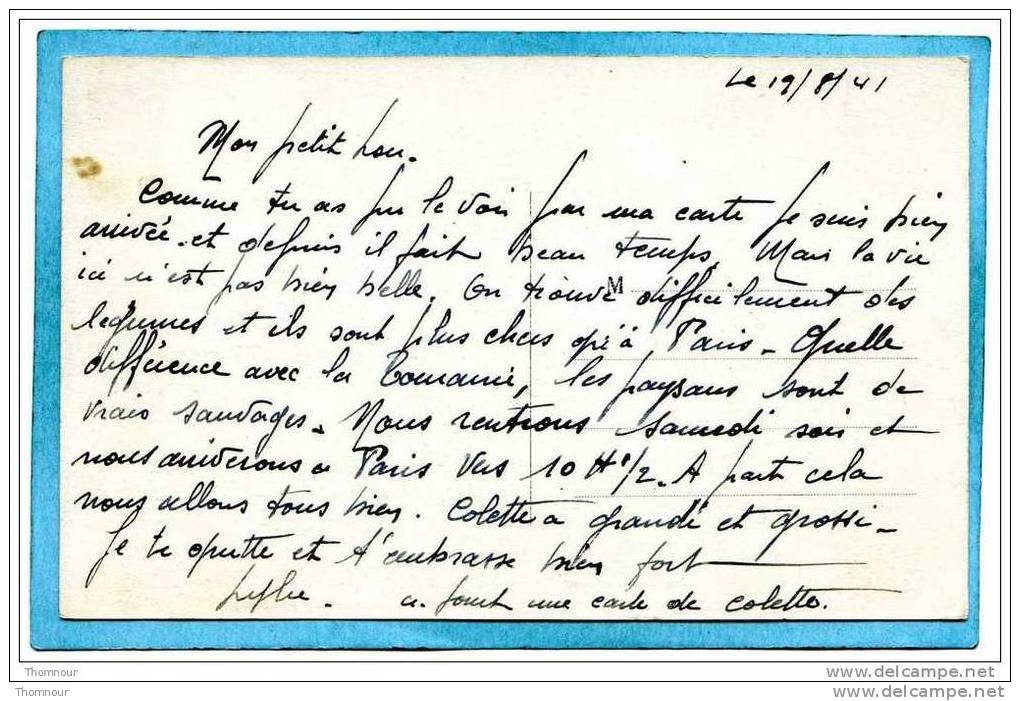 Le 19/8/41
Mon petit Lou.
Comme tu as pu le voir par ma carte je suis bien
arrivée. et depuis il fait beau temps. Mais la vie
ici n'est pas bien belle. On trouve difficilement des
M
légumes et ils sont plus chers qu'à Paris - Quelle
différence avec la, les paysans sont de
vrais sauvages. Nous rentrons samedi soir et
nous arriverons à Paris vers 10 H 1/2. A part cela
nous allons tous bien. Colette a grandi et grossi -
Je te quitte et t'embrasse bien fort
ci. joint une carte de Colette.
Thomnour
www.delcampe.net
Thomnour
www.delcampe.net